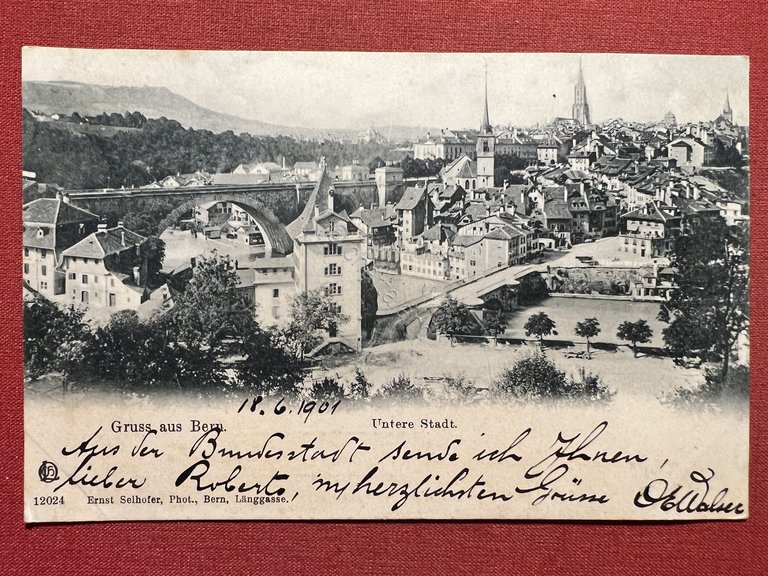 18.6.1901
Gruss aus Bern.
Untere Stadt.
Aus der Bundesstadt sende ich Ihnen,
lieber Roberto, m/herzlichsten Grüsse
Walser
12024 Ernst Selhofer, Phot., Bern, Länggasse.